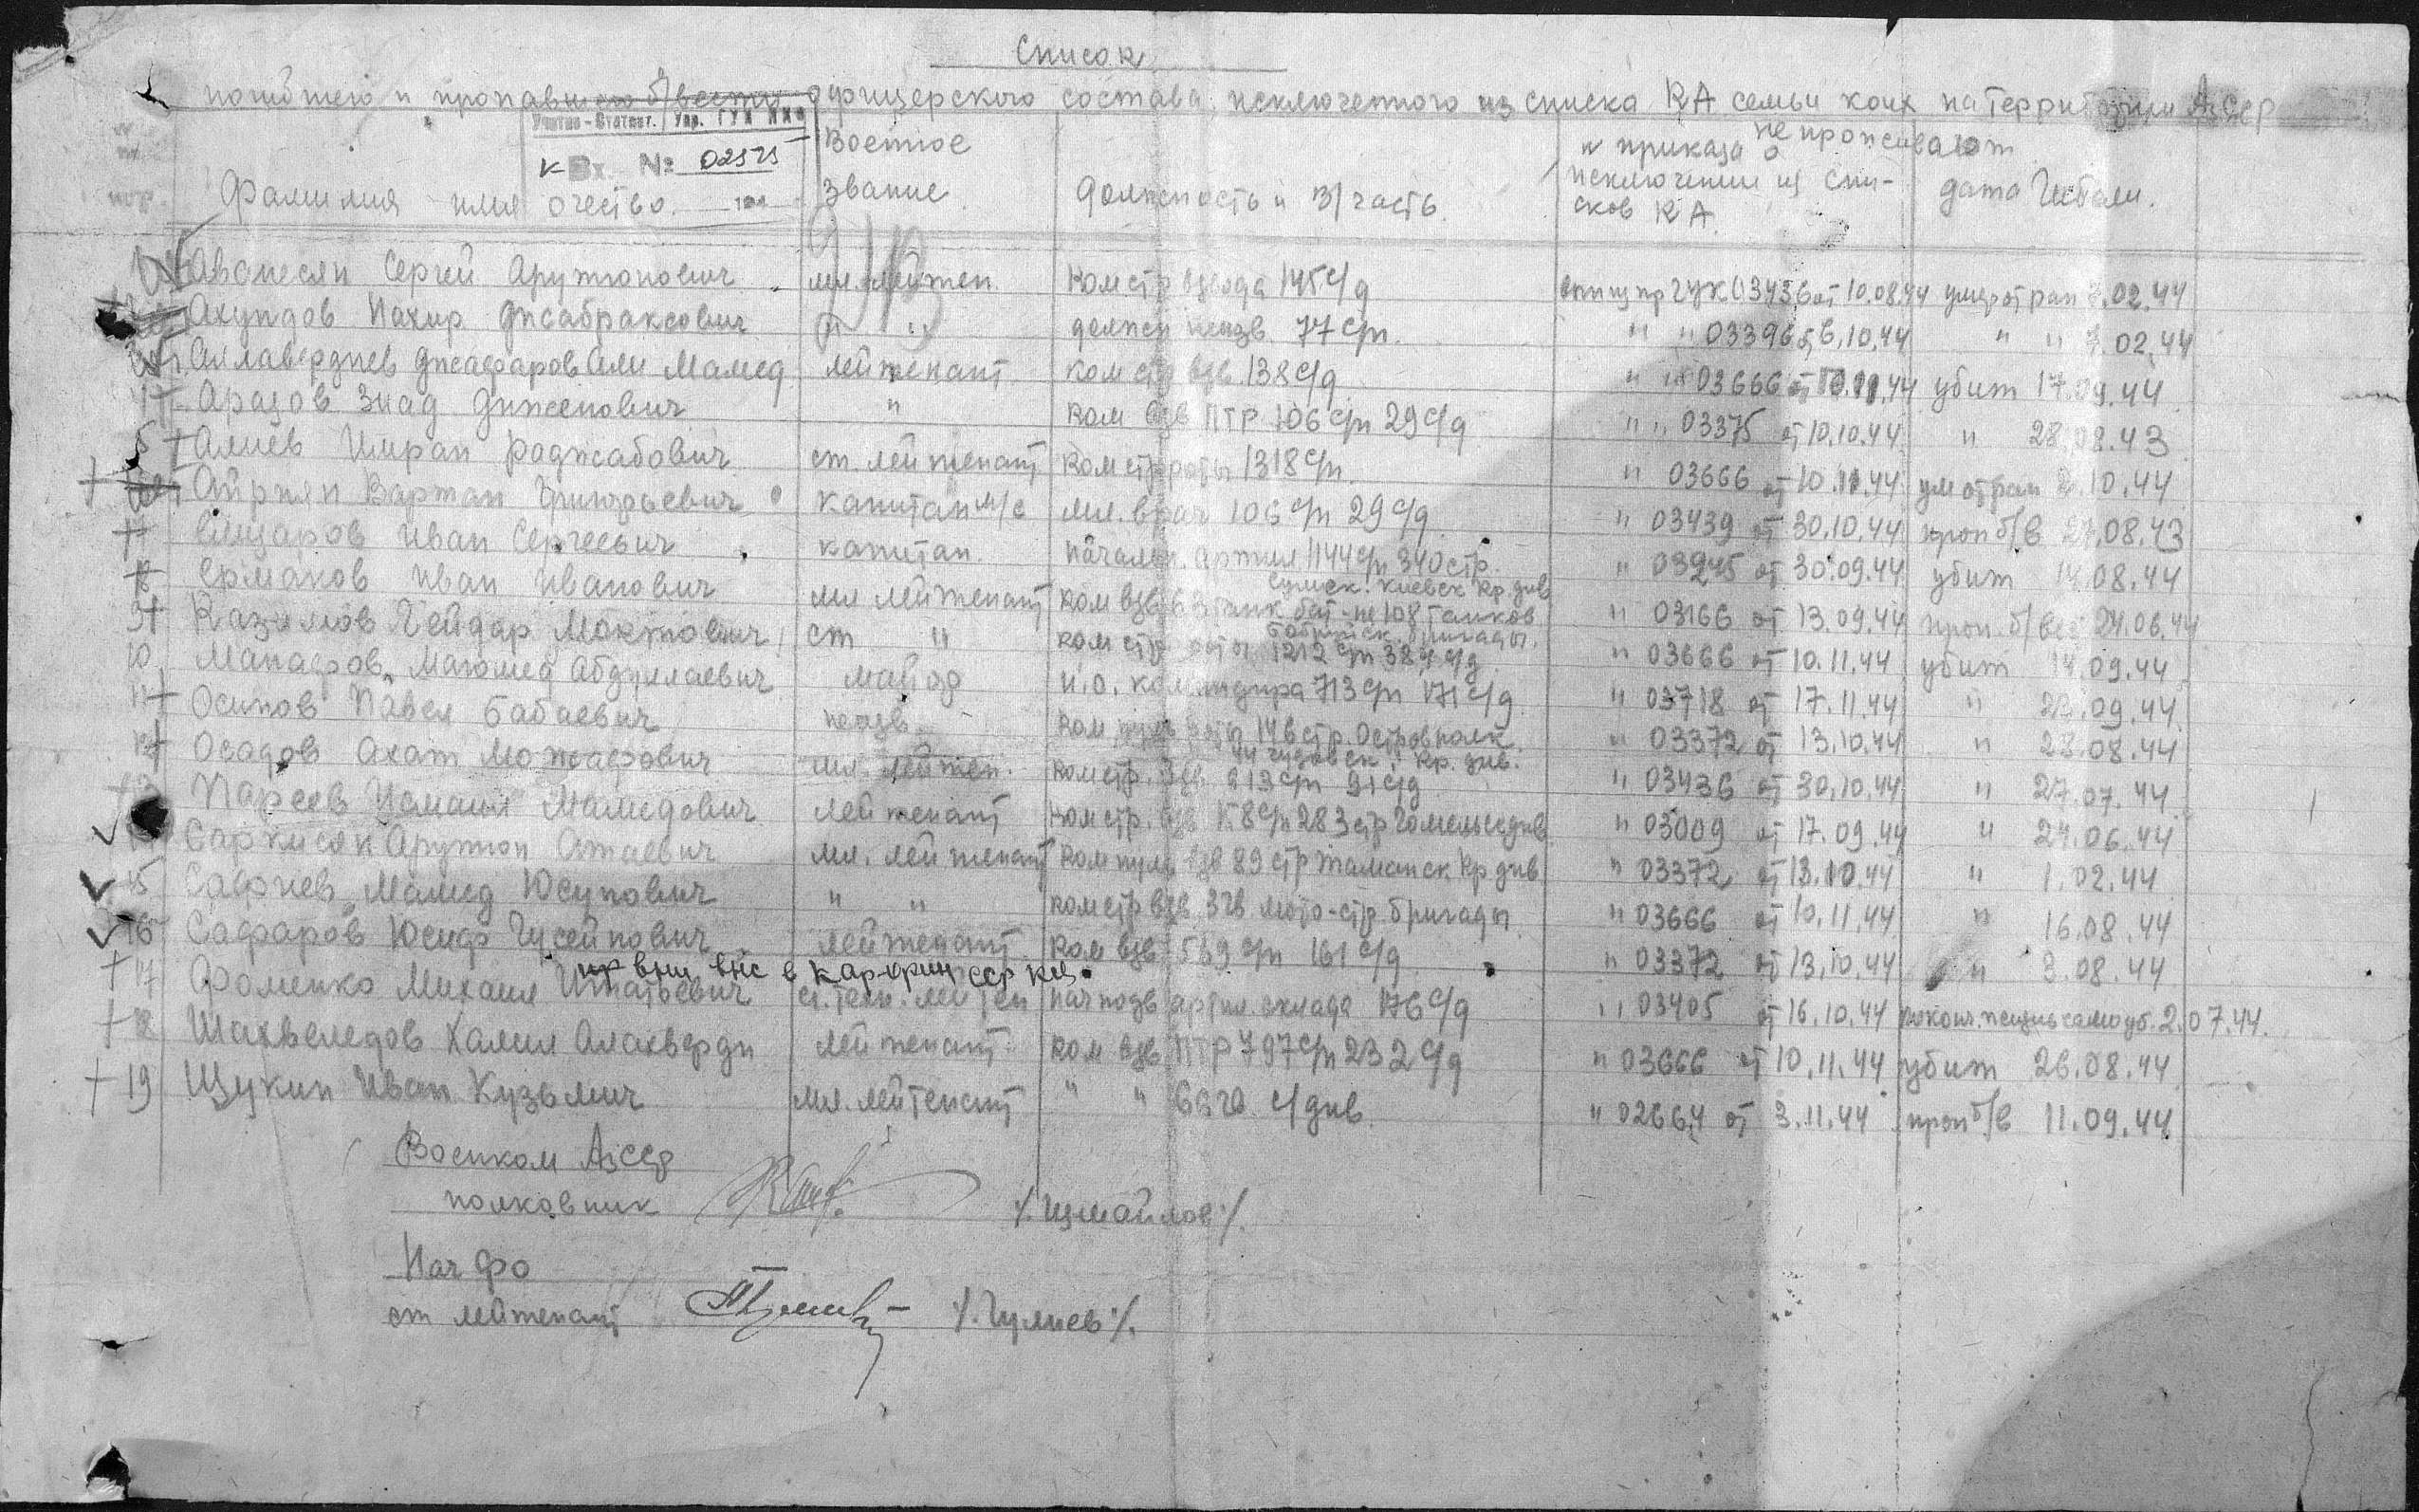 Список
погибшего и пропавшего б/вести офицерского состава, исключенного из списка КА семьи коих на территории АзССР
не проживают
Учетно-Статист. Упр. ГУК НКО
Вх. № 02575
194
Фамилия имя очество.
Военное звание
Должность и В/часть
№ приказа о исключении из списков КА.
дата Гибели.
Аванесян Сергей Арутюнович мл. лейтен. Ком стр взвода 145 с/д впищ пр ГУК 03436 от 10.08.44 умер от ран 3.02.44
Ахундов " " должн неизв. 77 с/п. " " 03396 от 6.10.44 " " 02.44
Аллавердиев Джафаров Али Мамед лейтенант ком стр взв. 138 с/д " " 03666 от 10.11.44 убит 17.09.44
Аразов Зиад " ком взв ПТР 106 с/п 29 с/д " " 03375 от 10.10.44 " 28.08.43
5 Алиев Имран Раджабович ст. лейтенант Ком стр роты 1318 с/п. " 03666 от 10.11.44 ум от ран 2.10.44
Айриян Вартан Григорьевич капитан м/с мл. врач 106 с/п 29 с/д " 03439 от 30.10.44 проп б/в 27.08.43
Елизаров Иван Сергеевич капитан. начальн. артил 1144 с/п 340 стр. Сумск. Киевск Кр. див " 03245 от 30.09.44 убит 14.08.44
8 Ермаков Иван Иванович мл лейтенант ком взв 63 танк бат-на 108 танков Бобруйск. бригады. " 03166 от 13.09.44 проп б/вес 24.06.44
9 Казимов Гейдар ст " ком стр роты 1212 с/п 384 с/д " 03666 от 10.11.44 убит 14.09.44
10 Манафов Магомед Абдуллаевич майор и.о. командира 713 с/п 171 с/д " 03718 от 17.11.44 " 23.09.44
11 Осипов Павел Бабаевич неизв. ком 146 стр. Остров полк. " 03372 от 13.10.44 " 28.08.44
12 Осадов Ахат мл. лейтен. ком стр. взв 613 с/п 91 с/д " 03436 от 30.10.44 " 27.07.44
13 Исмаил Мамедович лейтенант ком стр. взв с/п 283 стр Гомельс див " 03009 от 17.09.44 " 24.06.44
Саркисян Арутюн мл. лейтенант ком пулем взв 89 стр Таманск Кр див " 03372 от 13.10.44 " 1.02.44
15 Сафиев Мамед Юсупович " " ком стр взв. 3 гв мото-стр. бригады " 03666 от 10.11.44 " 16.08.44
16 Сафаров Юсиф Гусейнович лейтенант ком взв 569 с/п 161 с/д " 03372 от 13.10.44 " 3.08.44
17 Фоменко Михаил Игнатьевич ст. техн. лейтен нач подв артил. склада 176 с/д " 03405 от 16.10.44 поконч. жизнь самоуб. 2.07.44.
18 Шахвеледов Халил Алахверди лейтенант ком взв ПТР 797 с/п 232 с/д " 03666 от 10.11.44 убит 26.08.44
19 Щукин Иван Кузьмич мл. лейтенант " " с/див. " 02664 от 3.11.44 проп б/в 11.09.44
Военком АзССР
полковник /.Измайлов/.
Нач ФО
ст лейтенант /.Гулиев/.